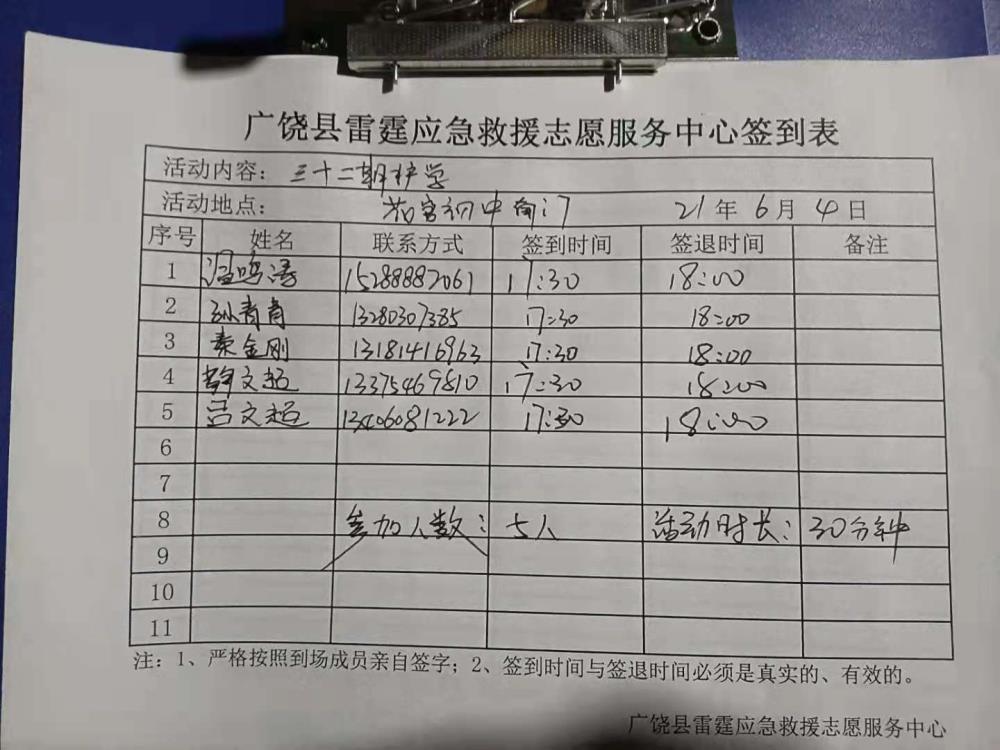 广饶县雷霆应急救援志愿服务中心签到表
活动内容: 三十二期护学
活动地点: 初中南门 21年6月4日
序号 姓名 联系方式 签到时间 签退时间 备注
1 温鸣涛 15288887061 17:30 18:00
2 孙青青 13280307385 17:30 18:00
3 秦金刚 13181416963 17:30 18:00
4 韩文超 13375469810 17:30 18:00
5 吕文超 13406081222 17:30 18:00
6
7
8 参加人数: 5人 活动时长: 30分钟
9
10
11
注: 1、严格按照到场成员亲自签字; 2、签到时间与签退时间必须是真实的、有效的。
广饶县雷霆应急救援志愿服务中心